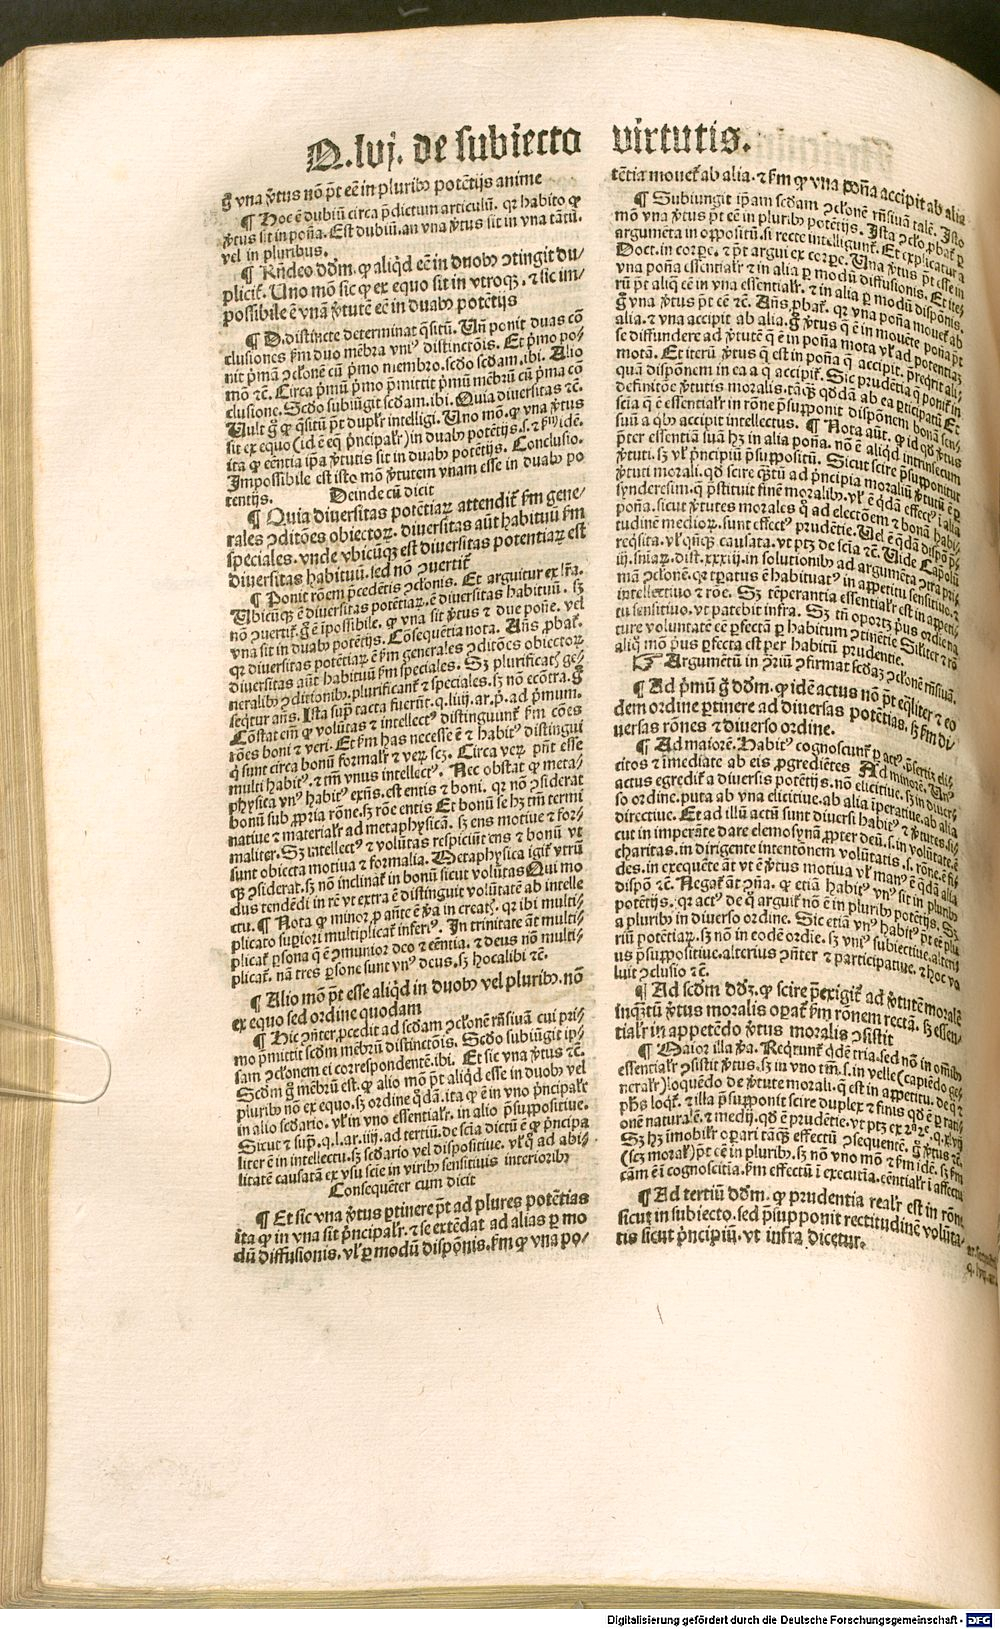 Q.lvj. de subiecto virtutis.
g̃ vna v̓tus nõ põt eẽ in pluribꝫ potẽtijs anime
¶ Hoc ẽ dubiũ circa p̃dictum articulũ. qꝛ habito ꝙ
v̓tus sit in põna. Est dubiũ. an vna v̓tus sit in vna tãtũ.
vel in pluribus.
¶ Rñdeo dd̓m. ꝙ aliq̓d eẽ in duobꝫ ↄtingit du-
plicit̓. Uno mõ sic ꝙ ex equo sit in vtroqꝫ. ⁊ sic im-
possibile ẽ vnã v̓tutẽ eẽ in duabꝫ potẽtijs
¶ D. distincte determinat q̓situ. Uñ ponit duas cõ
clusiones ẞm duo mẽbra vniꝰ distinctõis. Et p̓mo po-
nit p̓mã ↄclonẽ cũ p̓mo membro. scd̓o scd̓am. ibi. Alio
mõ ⁊c̃. Circa p̓mũ p̓mo p̓mittit p̓mũ mẽbrũ cũ p̓ma cõ
clusione. Scd̓o subiũgit scd̓am. ibi. Quia diuersitas ⁊c̃.
Uult g̃ ꝙ q̓situ põt dupl̓r intelligi. Uno mõ. ꝙ vna v̓tus
sit ex equo (id ẽ eq̃ p̓ncipal̓r) in duabꝫ potẽtijs. ⁊ ẞm idẽ.
ita ꝙ eẽntia ip̃a v̓tutis sit in duabꝫ potẽtijs. Conclusio.
Impossibile est isto mõ v̓tutem vnam esse in duabꝫ po
tentijs. Deinde cũ dicit
¶ Quia diuersitas potẽtiaꝝ attendit̓ ẞm gene-
rales ↄditões obiectoꝝ. diuersitas aũt habituũ ẞm
speciales. vnde vbicũqꝫ est diuersitas potentiaꝝ est
diuersitas habituũ. sed nõ ↄuertit̓
¶ Ponit rõem p̃cedẽtis ↄclonis. Et arguitur ex lr̃a.
Ubicũqꝫ ẽ diuersitas potẽtiaꝝ. ẽ diuersitas habituũ. sꝫ
nõ ↄuertit̓. g̃ ẽ ĩpossibile. ꝙ vna sit v̓tus ⁊ due põne. vel
vna sit in duabꝫ potẽtijs. Cõsequẽtia nota. Añs ꝓbat̓.
qꝛ diuersitas potẽtiaꝝ ẽ ẞm generales ↄditões obiectoꝝ
diuersitas aũt habituũ ẞm speciales. Sꝫ plurificatis ge-
neralibꝫ ↄditionibꝫ. plurificant̓ ⁊ speciales. sꝫ nõ ecõtra. g̃
seq̓tur añs. Ista sup̃ tacta fuerũt. q. liiij. ar. p̓. ad p̓mum.
Cõstat em̃ ꝙ volũtas ⁊ intellectꝰ distinguunt̓ ẞm cões
rões boni ⁊ veri. Et ẞm has necesse ẽ ⁊ habitꝰ distingui
q̓ sunt circa bonũ formal̓r ⁊ veꝝ scꝫ. Circa veꝝ p̃nt esse
multi habitꝰ. ⁊ tm̃ vnus intellectꝰ. Nec obstat ꝙ meta-
physica vnꝰ habitꝰ exñs. est entis ⁊ boni. qꝛ nõ ↄsiderat
bonũ sub ꝓpria rõne. sꝫ rõe entis Et bonũ se hꝫ tm̃ termi
natiue ⁊ material̓r ad metaphysicã. sꝫ ens motiue ⁊ for-
maliter. Sꝫ intellectꝰ ⁊ volũtas respiciũt ens ⁊ bonũ vt
sunt obiecta motiua ⁊ formalia. Metaphysica igit̓ vtrũ
qꝫ ↄsiderat. sꝫ nõ inclinat̓ in bonũ sicut volũtas Qui mo
dus tendẽdi in rẽ vt extra ẽ distinguit volũtatẽ ab intelle
ctu. ¶ Nota ꝙ minor ꝓ añte ẽ v̓a in creatis. qꝛ ibi multi-
plicato supiori multiplicat̓ inferiꝰ. In trinitate aũt multi-
plicat̓ persona q̃ ẽ ↄmunior deo ⁊ eẽntia. ⁊ deus nõ multi-
plicat̓. nã tres ꝑsone sunt vnꝰ deus. sꝫ hoc alibi ⁊c̃.
¶ Alio mõ põt esse aliq̓d in duobꝫ vel pluribꝫ. nõ
ex equo sed ordine quodam
¶ Hic ↄñter. ꝓcedit ad scd̓am ↄclonẽ rñsiuã cui pri-
mo p̓mittit scd̓m mẽbrũ distinctõis. Scd̓o subiũgit ip-
sam ↄclonem ei correspondentẽ. ibi. Et sic vna v̓tus ⁊c̃.
Scd̓m g̃ mẽbrũ est. ꝙ alio mõ põt aliq̓d esse in duobꝫ vel
pluribꝫ nõ ex equo. sꝫ ordine q̓dã. ita ꝙ ẽ in vno p̓ncipal̓r
in alio scd̓ario. vl̓ in vno essential̓r. in alio p̃suppositiue.
Sicut ⁊ sup̃. q. l. ar. iiij. ad tertiũ. de scia dictũ ẽ ꝙ p̓ncipa
liter ẽ in intellectu. sꝫ scd̓ario vel dispositiue. vl̓ q̃ ad abi-
litatẽ causatã ex vsu scie in viribꝫ sensitiuis interioribꝫ
Consequẽter cum dicit
¶ Et sic vna v̓tus ꝑtinere põt ad plures potẽtias
ita ꝙ in vna sit p̓ncipal̓r. ⁊ se extẽdat ad alias ꝑ mo
dũ diffusionis. vl̓ ꝑ modũ dispõnis. ẞm ꝙ vna po-
tẽtia mouet̓ ab alia. ⁊ ẞm ꝙ vna põna accipit ab alia
¶ Subiungit ip̃am scd̓am ↄclonẽ rñsiuã talẽ. Isto
mõ vna v̓tus põt eẽ in pluribꝫ potẽtijs. Ista ↄclo ꝓbat̓ ꝑ
argumẽta in oppositũ. si recte intelligunt̓. Et explicatur a
Doct. in corꝑe. ⁊ põt argui ex corꝑe. Una v̓tus põt esse in
vna põna essential̓r ⁊ in alia ꝑ modũ diffusionis. Et ite-
rũ põt aliq̓ eẽ in vna essential̓r. ⁊ in alia ꝑ modũ dispõnis.
g̃ vna v̓tus põt eẽ ⁊c̃. Añs ꝓbat̓. qꝛ vna põna mouet̓ ab
alia. ⁊ vna accipit ab alia. g̃ v̓tus q̃ ẽ in mouẽte põna põt
se diffundere ad v̓tutẽ q̃ ẽ in põna mota vl̓ ad potentiaꝫ
motã. Et iterũ v̓tus q̃ est in põna q̃ accipit. p̃reqrit ali-
quã dispõnem in ea a q̃ accipit. Sic prudẽtia q̃ ponit̓ in
definitõe v̓tutis moralis. tãqꝫ qd̓dã ab ea ꝑticipatũ Et
scia q̃ ẽ essential̓r in rõne p̃supponit dispõnem bonã sen-
suũ a qbꝫ accipit intellectus. ¶ Nota aũt. ꝙ id qd̓ v̓tus
p̃ter essentiã suã hꝫ in alia põna. nõ ẽ aliq̓d intrinsecum
v̓tuti. sꝫ vl̓ p̓ncipiũ p̃suppositũ. Sicut scire p̃supponitur
v̓tuti morali. qd̓ scire q̃tũ ad p̓ncipia moraliũ v̓tutũ ẽ ꝑ
synderesim. q̃ p̃stituit finẽ moralibꝫ. vl̓ ẽ q̓dã effectꝰ ĩ alia
põna. sicut v̓tutes morales q̃ ad electõem ⁊ bonã habi-
tudinẽ medioꝝ. sunt effectꝰ prudẽtie. Uel ẽ q̓dã dispõ p̃-
reqsita. vl̓ qñqꝫ causata. vt ptꝫ de scia ⁊c̃. Uide Capolũ
iij. sniaꝝ. dist. xxxiij. in solutionibꝫ ad argumẽta ↄtra pri-
mã ↄclonẽ. qꝛ tꝑatus ẽ habituatꝰ in appetitu sensitiuo. ⁊
intellectiuo ⁊ rõe. Sꝫ tẽperantia essential̓r est in appeti-
tu sensitiuo. vt patebit infra. Sꝫ tñ oportꝫ p̓us ordie na
ture voluntatẽ eẽ ꝑfectã ꝑ habitum ↄtinẽtie Siliter ⁊ rõ
aliq̃ mõ p̓us ꝑfecta est per habitũ prudentie.
☞ Argumẽtũ in ↄriũ ↄfirmat scd̓aꝫ ↄclonẽ rñsiuã.
¶ Ad p̓mũ g̃ dd̓m. ꝙ idẽ actus nõ põt eq̃liter ⁊ eo
dem ordine ꝑtinere ad diuersas potẽtias. sꝫ ẞm di
uersas rõnes ⁊ diuerso ordine.
¶ Ad maiorẽ. Habitꝰ cognoscunt̓ ꝑ actꝰ. p̃sertiꝫ eli-
citos ⁊ ĩmediate ab eis ꝓgrediẽtes Ad minorẽ. Unꝰ
actus egredit̓ a diuersis potẽtijs. nõ elicitiue. sꝫ in diuer-
so ordine. puta ab vna elicitiue. ab alia ĩperatiue. ab alia
directiue. Et ad illũ actũ sunt diuersi habitꝰ ⁊ v̓tutes. si-
cut in imperãte dare elemosynã ꝓpter deũ. s. in volũtate. ẽ
charitas. in dirigente intentõnem volũtatis. s. rõne. ẽ fi-
des. in exequẽte aũt vt ẽ v̓tus motiua vl̓ manꝰ ẽ q̓dã alia
dispõ ⁊c̃. Negat̓ aũt ↄña. ꝙ etiã habitꝰ vnꝰ sit in pluribꝫ
potẽtijs. qꝛ actꝰ de q̃ arguit̓ nõ ẽ in pluribꝫ potẽtijs. Sꝫ
a pluribꝫ in diuerso ordine. Sic etiã vnꝰ habitꝰ põt eẽ plu
riũ potẽtiaꝝ. sꝫ nõ in eodẽ ordie. sꝫ vniꝰ subiectiue. alteri
us p̃suppositiue. alterius ↄñter ⁊ participatiue. ⁊ hoc vo
luit ↄclusio ⁊c̃.
¶ Ad scd̓m dd̓ꝫ. ꝙ scire p̃exigit̓ ad v̓tutẽ moralẽ
inq̃tũ v̓tus moralis oꝑat̓ ẞm rõnem rectã. sꝫ essen-
tial̓r in appetẽdo v̓tus moralis ↄsistit
¶ Maior illa v̓a. Reqrunt̓ q̓dẽ tria. sed nõ in omibꝫ
essential̓r ↄsistit v̓tus. sꝫ in vno tm̃. s. in velle (capiẽdo ge-
neral̓r) loquẽdo de v̓tute morali. q̃ est in appetitu. de q̃ ⁊
ph̃s loqt̓. ⁊ illa p̃supponit scire duplex ⁊ finis qd̓ ẽ ꝑ rati-
onẽ naturalẽ. ⁊ medij. qd̓ ẽ prudẽtie. vt ptꝫ ex 2ª2ᵉ. q. xlvij
Sꝫ hꝫ imobil̓r oꝑari tãqꝫ effectũ ↄsequentẽ. g̃ v̓tus ⁊c̃.
(scꝫ moral̓) põt eẽ in pluribꝫ. sꝫ nõ vno mõ ⁊ ẞm idẽ. sꝫ ẞm
cãm ẽ ĩ cognoscitia. ẞm effectũ ĩ executia. eẽntial̓r ĩ affectu
¶ Ad tertiũ dd̓m. ꝙ prudentia real̓r est in rõne
sicut in subiecto. sed p̃supponit rectitudinẽ volũta-
tis sicut p̓ncipiũ. vt infra dicetur.
Digitalisierung gefördert durch die Deutsche Forschungsgemeinschaft - DFG